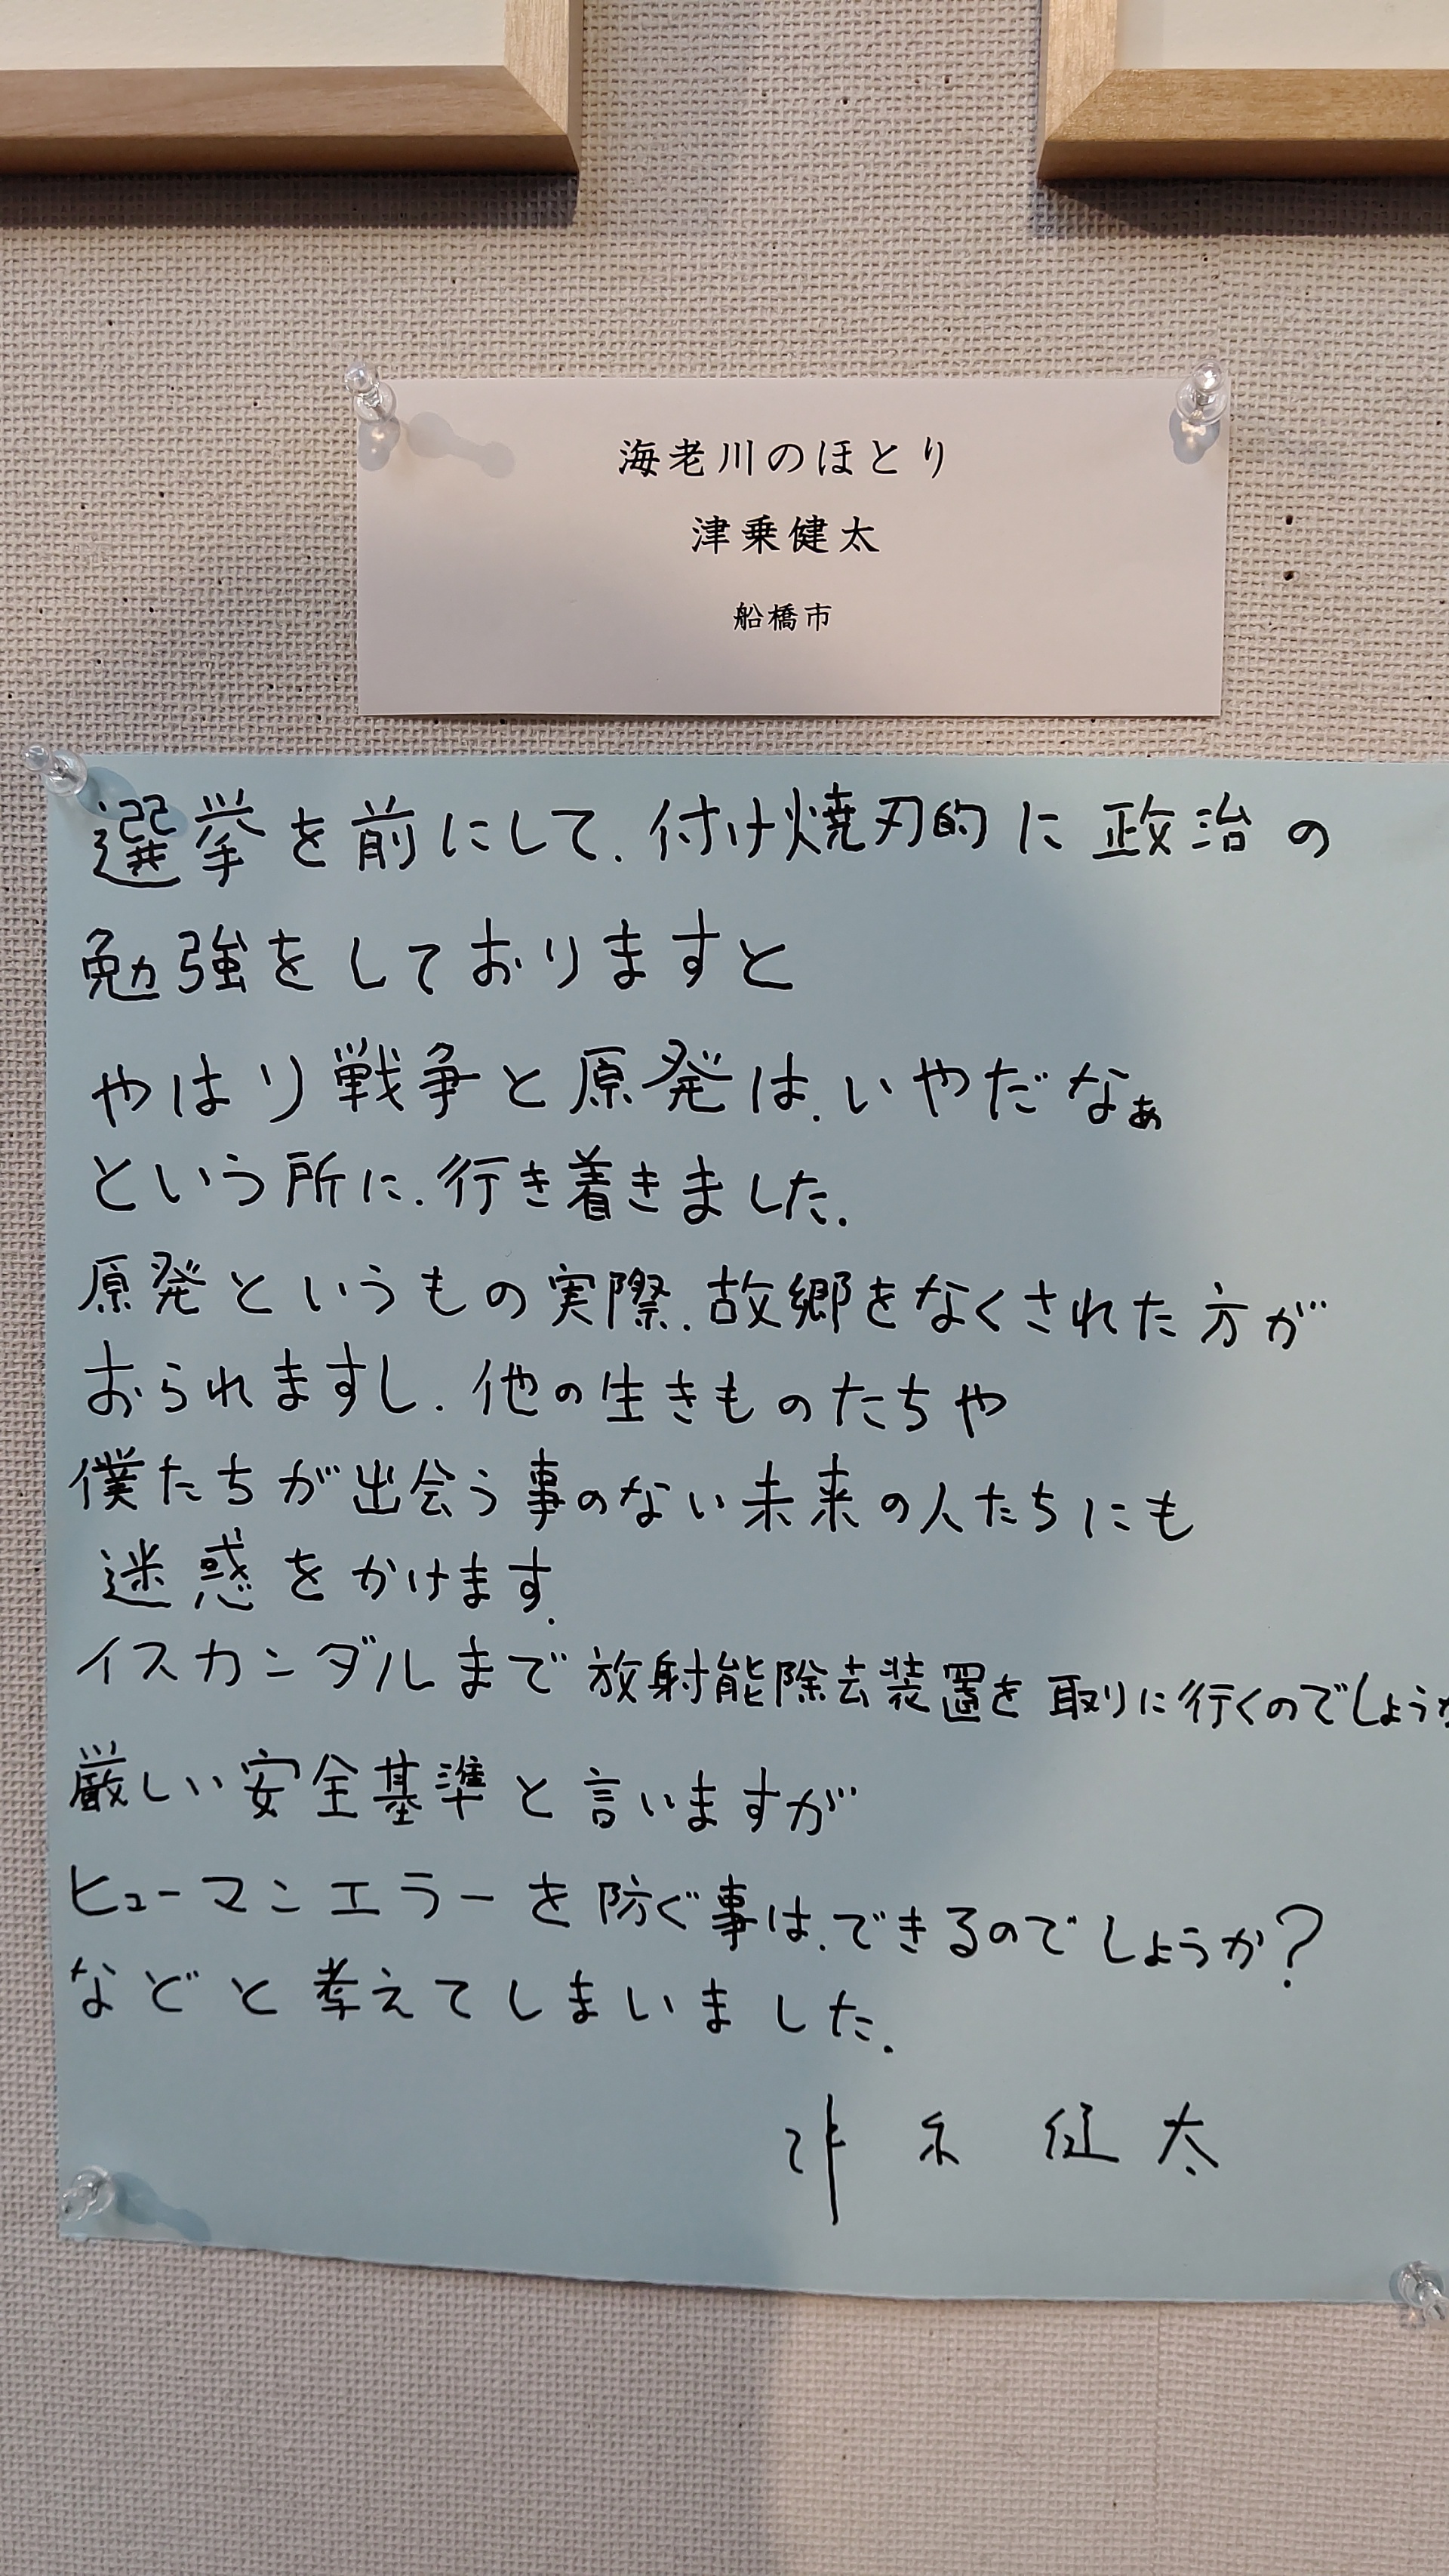 海老川のほとり
津乗健太
船橋市
選挙を前にして.付け焼刃的に政治の
勉強をしておりますと
やはり戦争と原発は.いやだなぁ
という所に.行き着きました.
原発というもの実際.故郷をなくされた方が
おられますし.他の生きものたちや
僕たちが出会う事のない未来の人たちにも
迷惑をかけます.
イスカンダルまで放射能除去装置を取りに行くのでしょうか
厳しい安全基準と言いますが
ヒューマンエラーを防ぐ事は.できるのでしょうか?
などと考えてしまいました.
津乗健太